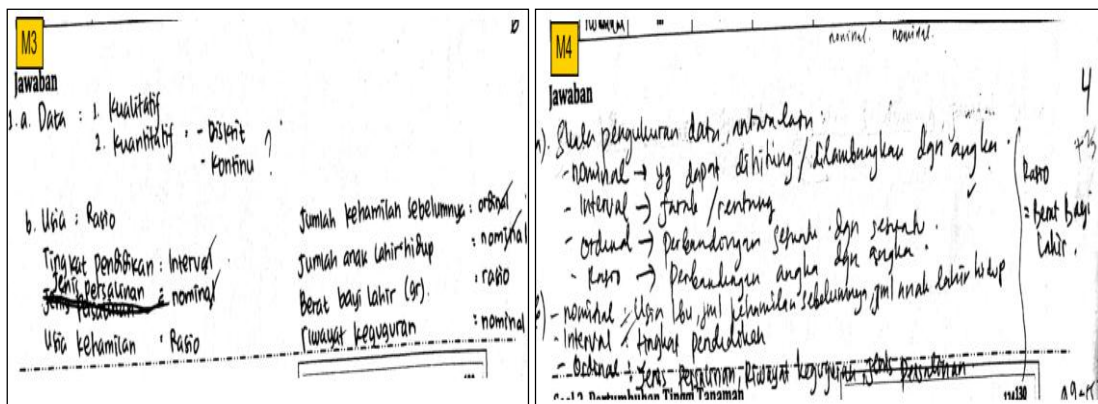 M3
Jawaban
1. a. Data : 1. Kualitatif
2. Kuantitatif : - Diskrit
- Kontinu ?
b. Usia : Rasio
Tingkat pendidikan : Interval
Jenis persalinan : nominal
Usia kehamilan : Rasio
Jumlah kehamilan sebelumnya : ordinal
Jumlah anak lahir hidup : nominal
Berat bayi lahir (gr). : rasio
Riwayat keguguran : nominal
M4
nominal. nominal.
Jawaban
4
a). Skala pengukuran data, antara lain :
- nominal → yg dapat dihitung / dilambangkan dgn angka.
- Interval → jarak / rentang
- Ordinal → perbandingan sebuah dgn sebuah.
- Rasio → Perbandingan angka dgn angka.
- nominal : Usia Ibu, jml kehamilan sebelumnya, jml anak lahir hidup
- Interval : tingkat pendidikan
- Ordinal : Jenis Persalinan, Riwayat keguguran, jenis persalinan
Rasio
= Berat Bayi
Lahir.
Soal 2. Pertumbuhan Tinggi Tanaman